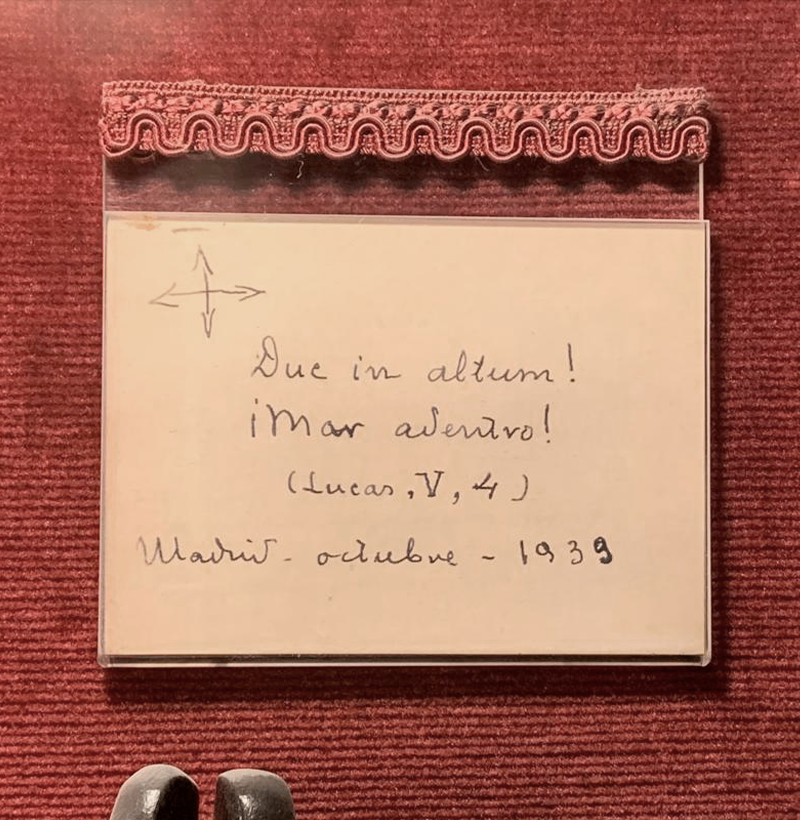 Duc in altum!
¡Mar adentro!
(Lucas, V, 4)
Madrid - octubre - 1939